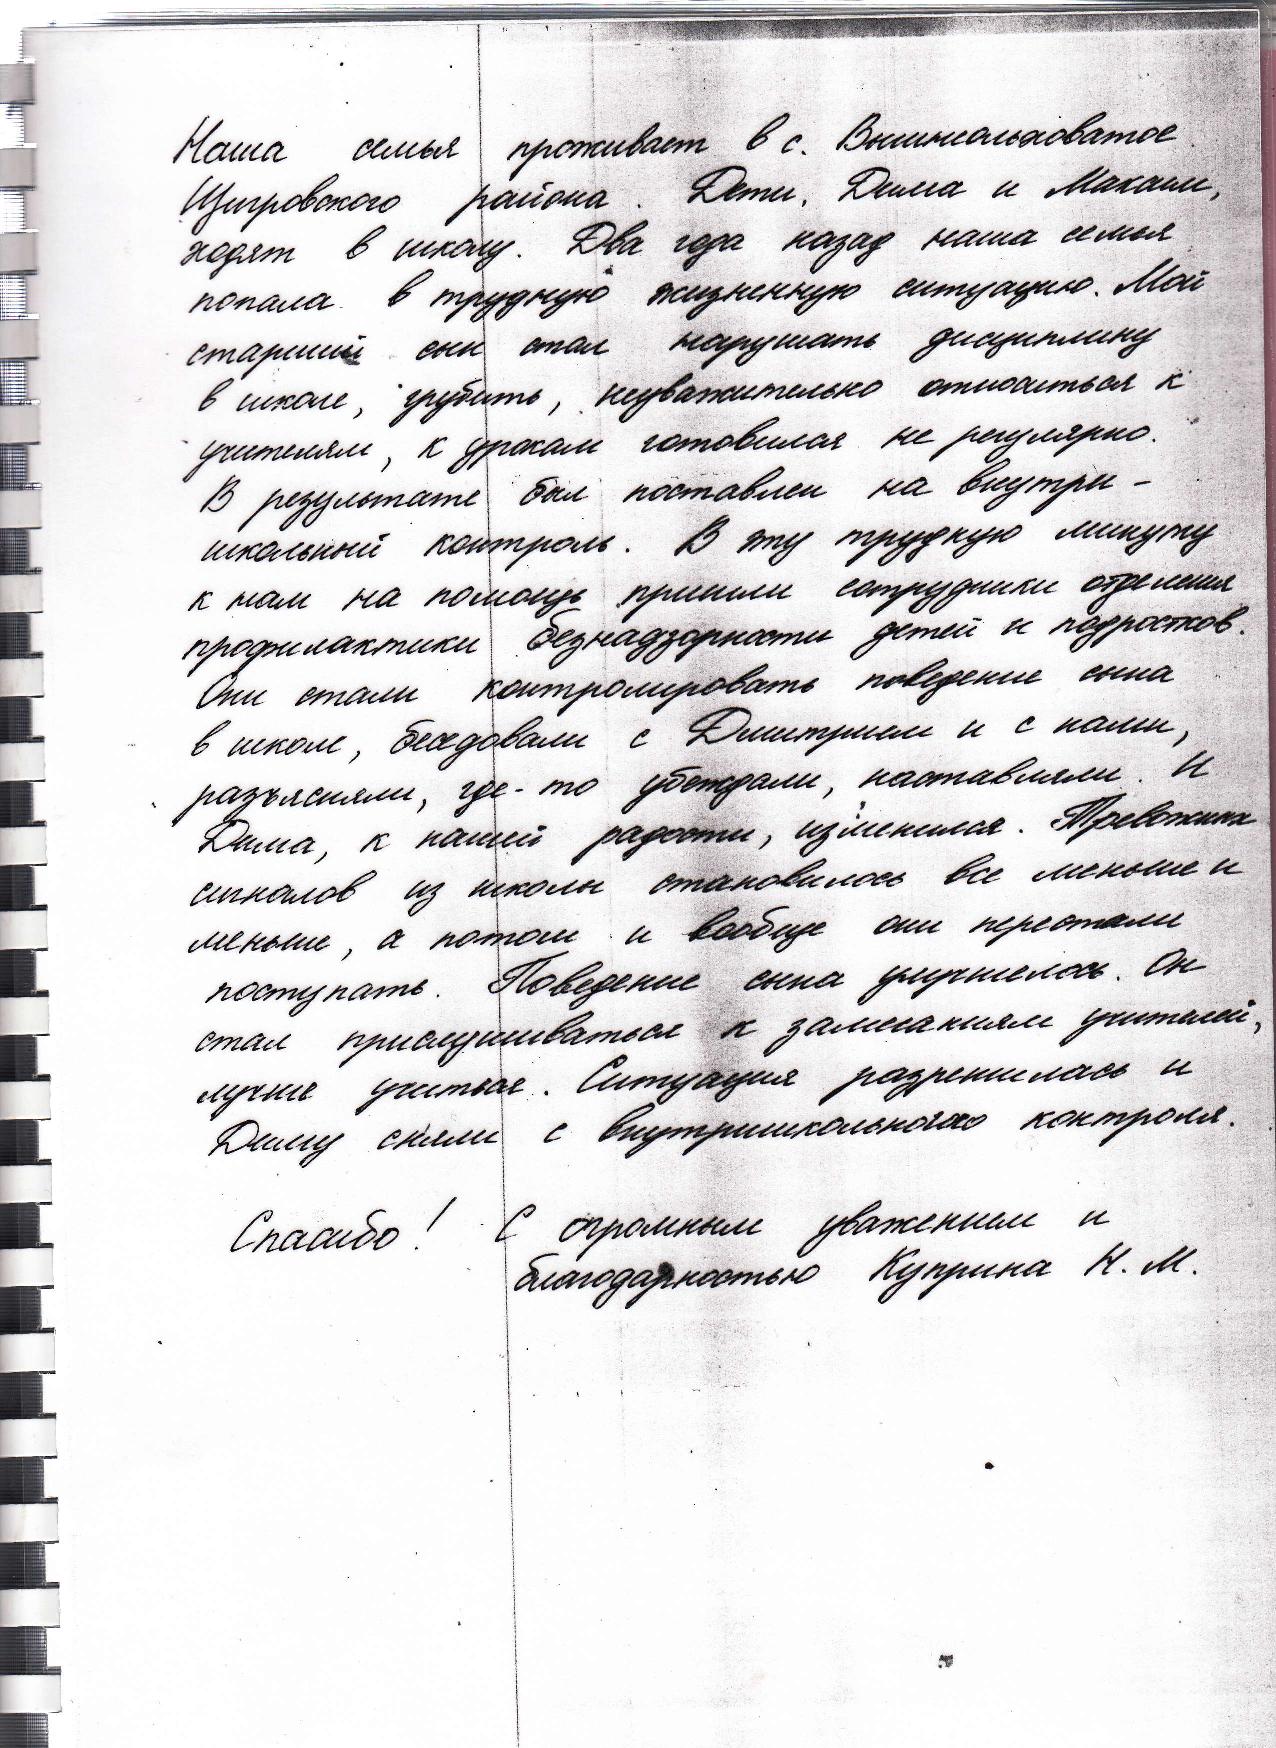 Наша семья проживает в с. Вышнеольховатое
Щигровского района. Дети, Дима и Максим,
ходят в школу. Два года назад наша семья
попала в трудную жизненную ситуацию. Мой
старший сын стал нарушать дисциплину
в школе, грубить, неуважительно относиться к
учителям, к урокам готовился не регулярно.
В результате был поставлен на внутри-
школьный контроль. В эту трудную минуту
к нам на помощь пришли сотрудники отделения
профилактики безнадзорности детей и подростков.
Они стали контролировать поведение сына
в школе, беседовали с Дмитрием и с нами,
разъясняли, где-то убеждали, наставляли. И
Дима, к нашей радости, изменился. Тревожных
сигналов из школы становилось все меньше и
меньше, а потом и вообще они перестали
поступать. Поведение сына улучшилось. Он
стал прислушиваться к замечаниям учителей,
лучше учиться. Ситуация разрешилась и
Диму сняли с внутришкольного контроля.
Спасибо! С огромным уважением и
благодарностью Куприна Н. М.